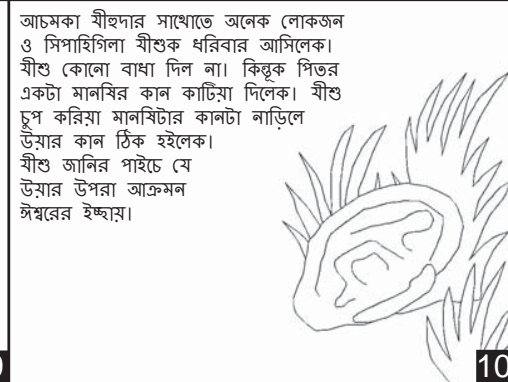 আচমকা যীহুদার সাথোতে অনেক লোকজন
ও সিপাহিগিলা যীশুক ধরিবার আসিলেক।
যীশু কোনো বাধা দিল না। কিন্তুক পিতর
একটা মানষির কান কাটিয়া দিলেক। যীশু
চুপ করিয়া মানষিটার কানটা নাড়িলে
উয়ার কান ঠিক হইলেক।
যীশু জানির পাইচে যে
উয়ার উপরা আক্রমন
ঈশ্বরের ইচ্ছায়।
10